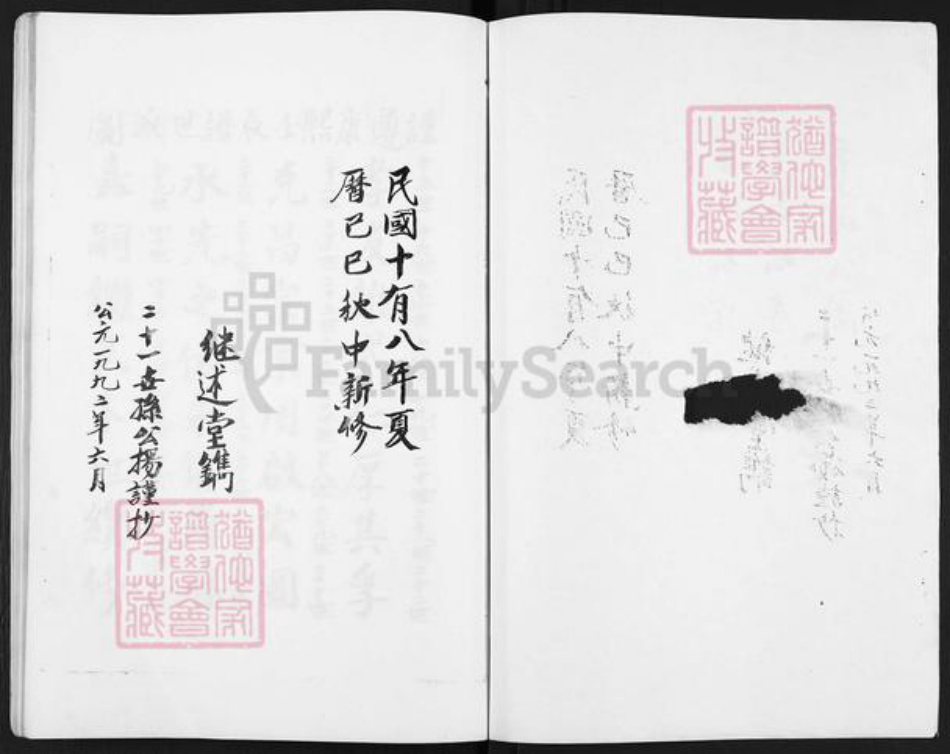 民國十有八年夏
曆己巳秋中新修
继述堂鐫
二十一世孫公揚謹抄
公元一九九二年六月
猶他家
譜學會
收藏
猶他家
譜學會
收藏
FamilySearch